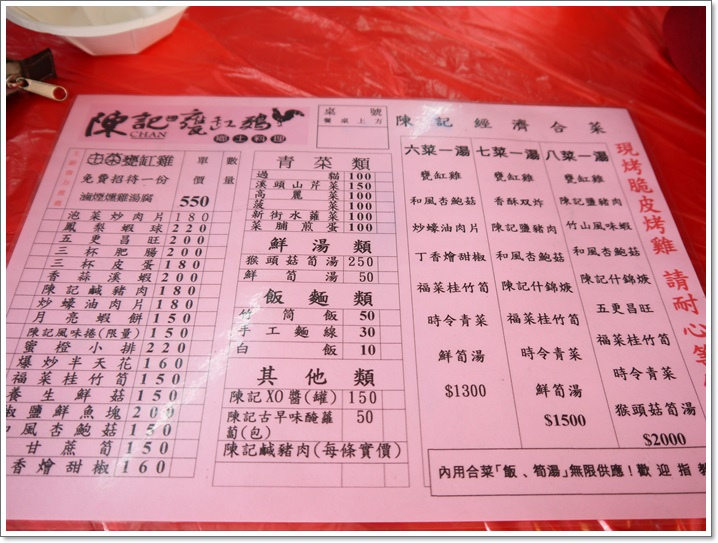 陳記甕缸雞
CHAN
鄉土料理
桌號
餐桌上方
陳記經濟合菜
甕缸雞
單價
數量
免費招待一份
滷煙燻雞湯腐
550
泡菜炒肉片 180
鳳梨蝦球 220
五更昌旺 200
三杯肥腸 200
三杯皮蛋 180
香蒜溪蝦 200
陳記鹹豬肉 180
炒蠔油肉片 180
月亮蝦餅 150
陳記風味捲(限量) 150
蜜橙小排 220
爆炒半天花 160
福菜桂竹筍 150
養生鮮菇 150
椒鹽鮮魚塊 200
和風杏鮑菇 150
甘蔗筍 150
香燴甜椒 160
青菜類
過貓 100
溪頭山芹菜 150
高麗菜 100
菠菜 100
新街水蓮菜 100
菜脯煎蛋 100
鮮湯類
猴頭菇筍湯 250
鮮筍湯 50
飯麵類
竹筒飯 50
手工麵線 30
白飯 10
其他類
陳記XO醬(罐) 150
陳記古早味醃蘿蔔(包) 50
陳記鹹豬肉(每條實價)
六菜一湯
甕缸雞
和風杏鮑菇
炒蠔油肉片
丁香燴甜椒
福菜桂竹筍
時令青菜
鮮筍湯
$1300
七菜一湯
甕缸雞
香酥双炸
陳記鹽豬肉
和風杏鮑菇
陳記什錦煲
福菜桂竹筍
時令青菜
鮮筍湯
$1500
八菜一湯
甕缸雞
陳記鹽豬肉
竹山風味蝦
和風杏鮑菇
陳記什錦煲
五更昌旺
福菜桂竹筍
時令青菜
猴頭菇筍湯
$2000
現烤脆皮烤雞 請耐心等
內用合菜「飯、筍湯」無限供應!歡迎指教